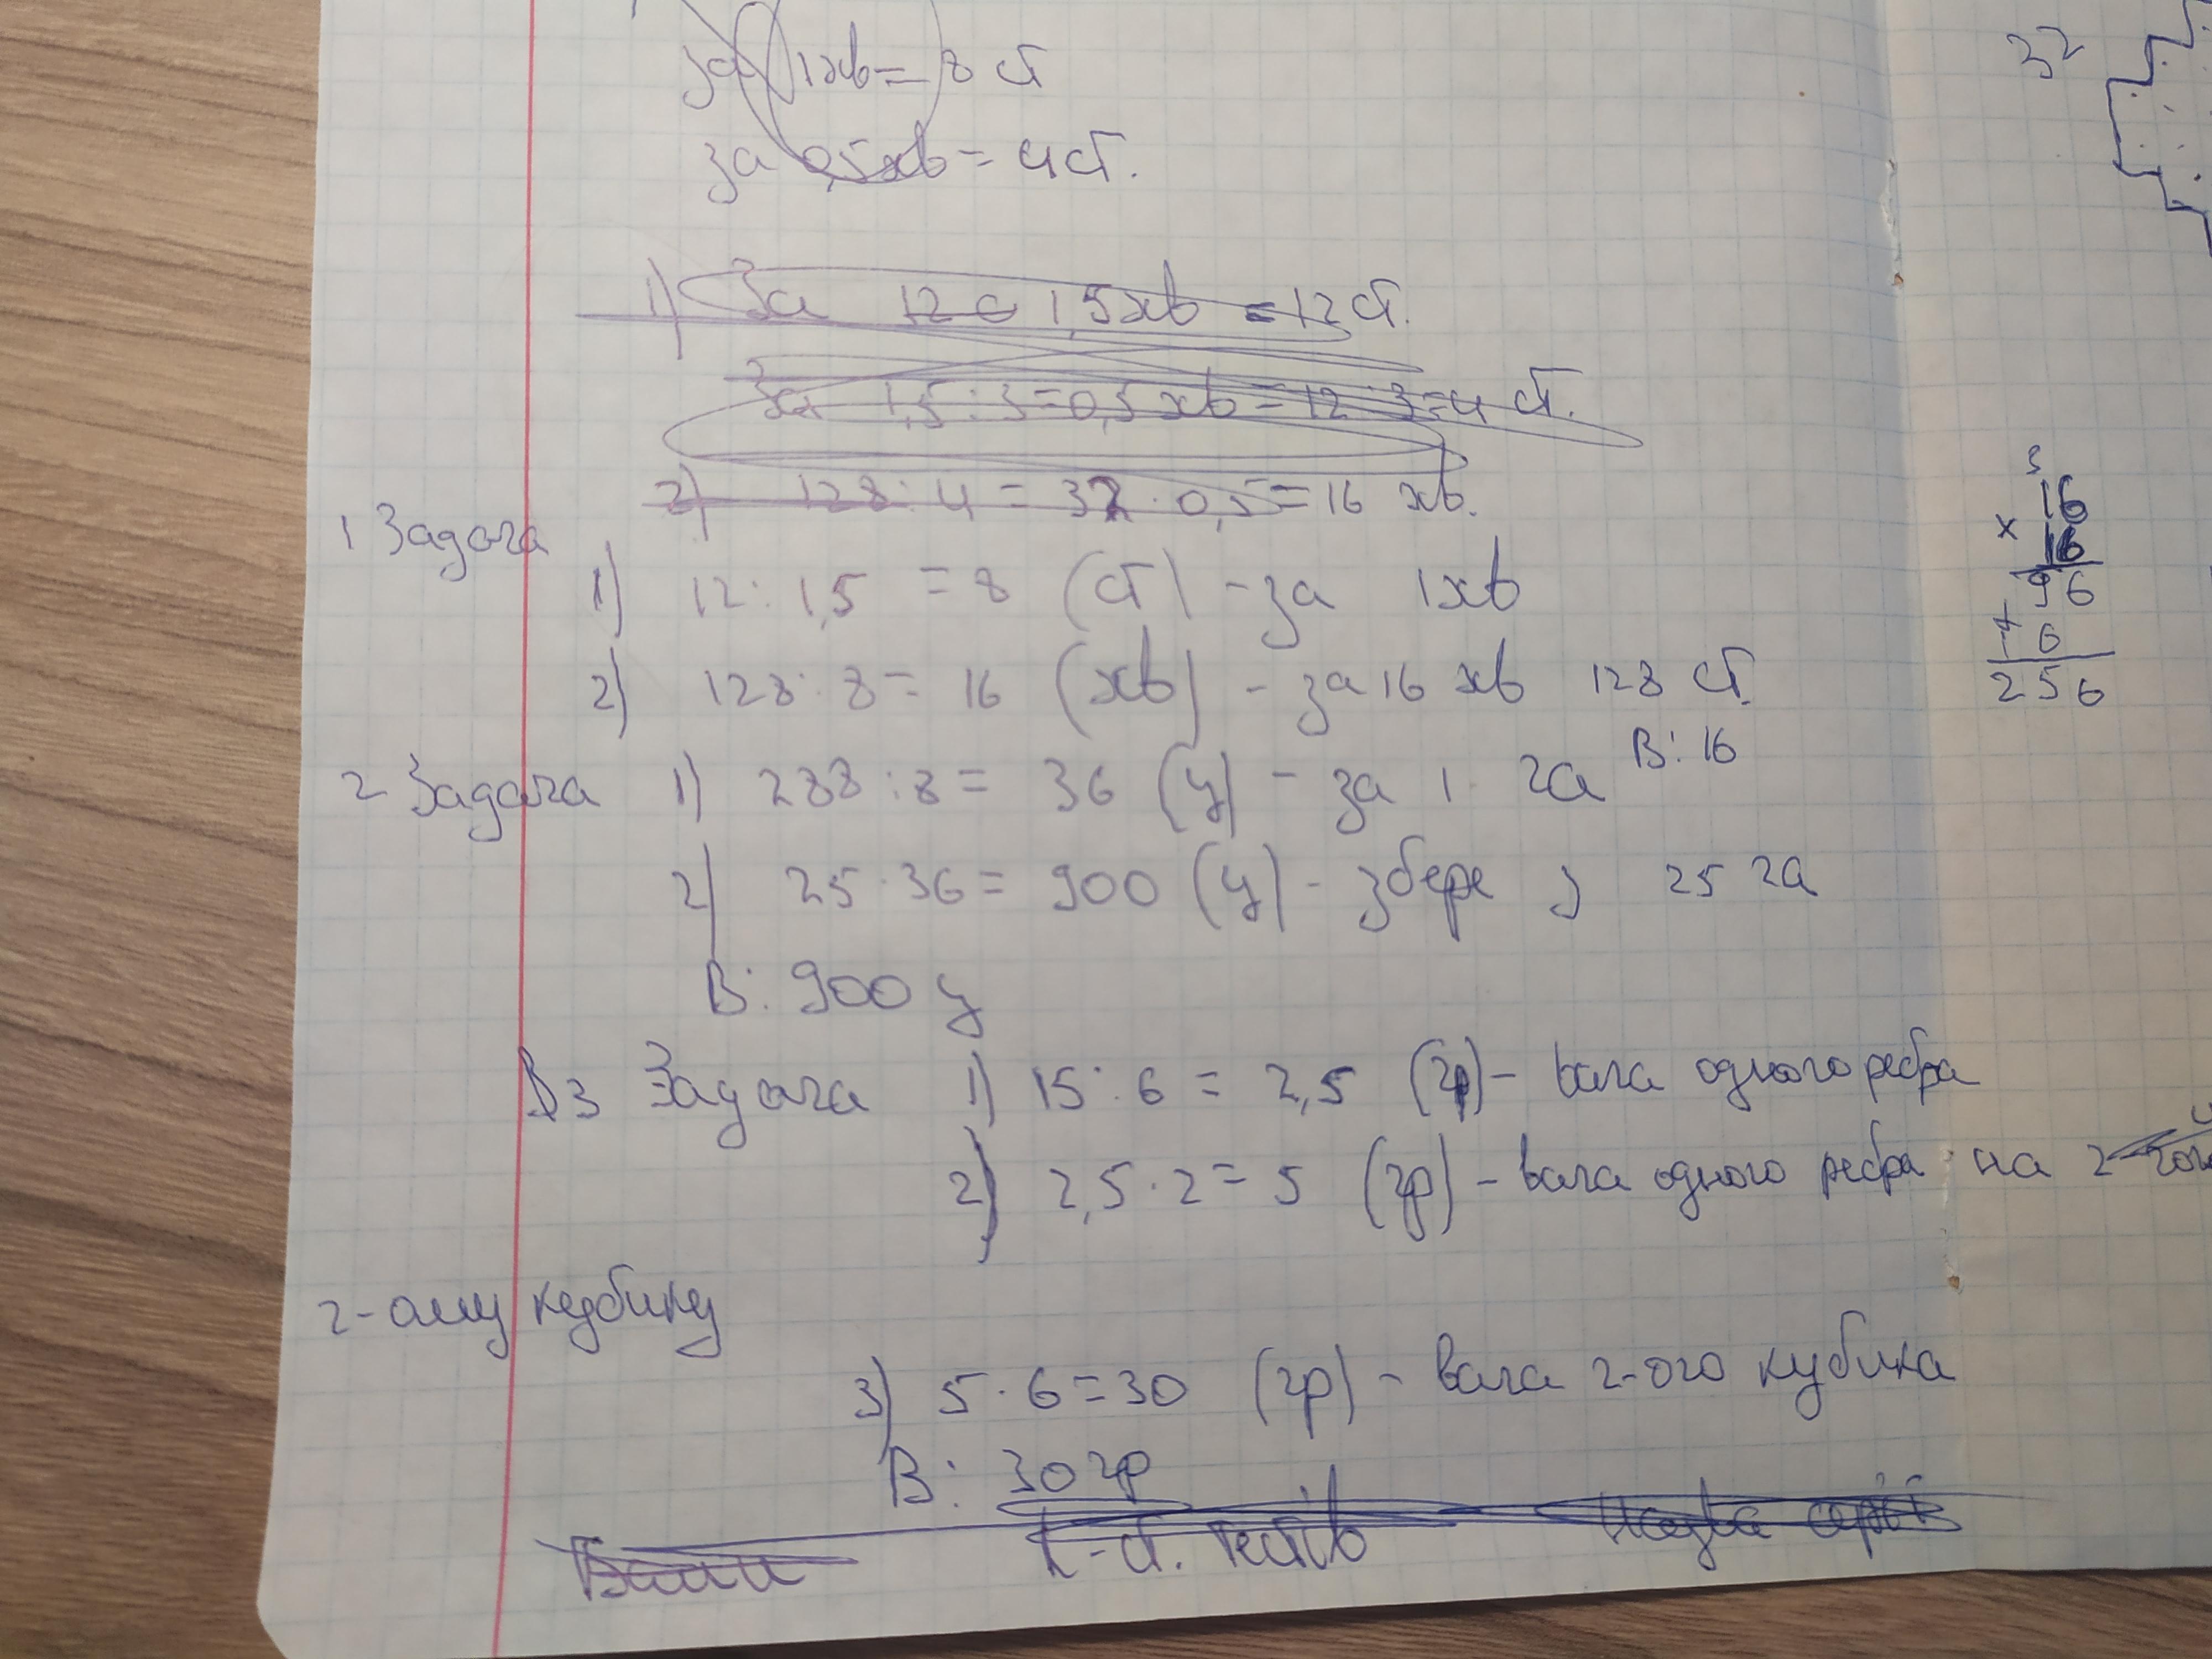 за 1хв = 8 ст
за 0,5хв = 4 ст.
32
1) За 12 с 1,5хв = 12 ст.
За 1,5 : 3 = 0,5 хв = 12 : 3 = 4 ст.
2) 128 : 4 = 32 · 0,5 = 16 хв.
1 Задача
1) 12 : 1,5 = 8 (ст) - за 1хв
2) 128 : 8 = 16 (хв) - за 16 хв 128 ст.
В: 16
3
16
х 16
96
+ 16
256
2 Задача 1) 288 : 8 = 36 (ц) - за 1 га
2) 25 · 36 = 900 (ц) - збере з 25 га
В: 900 ц
3 Задача 1) 15 : 6 = 2,5 (гр) - вага одного ребра
2) 2,5 · 2 = 5 (гр) - вага одного ребра на
2-ому кубику
3) 5 · 6 = 30 (гр) - вага 2-ого кубика
В: 30 гр
к-ст. тестів Назва серії